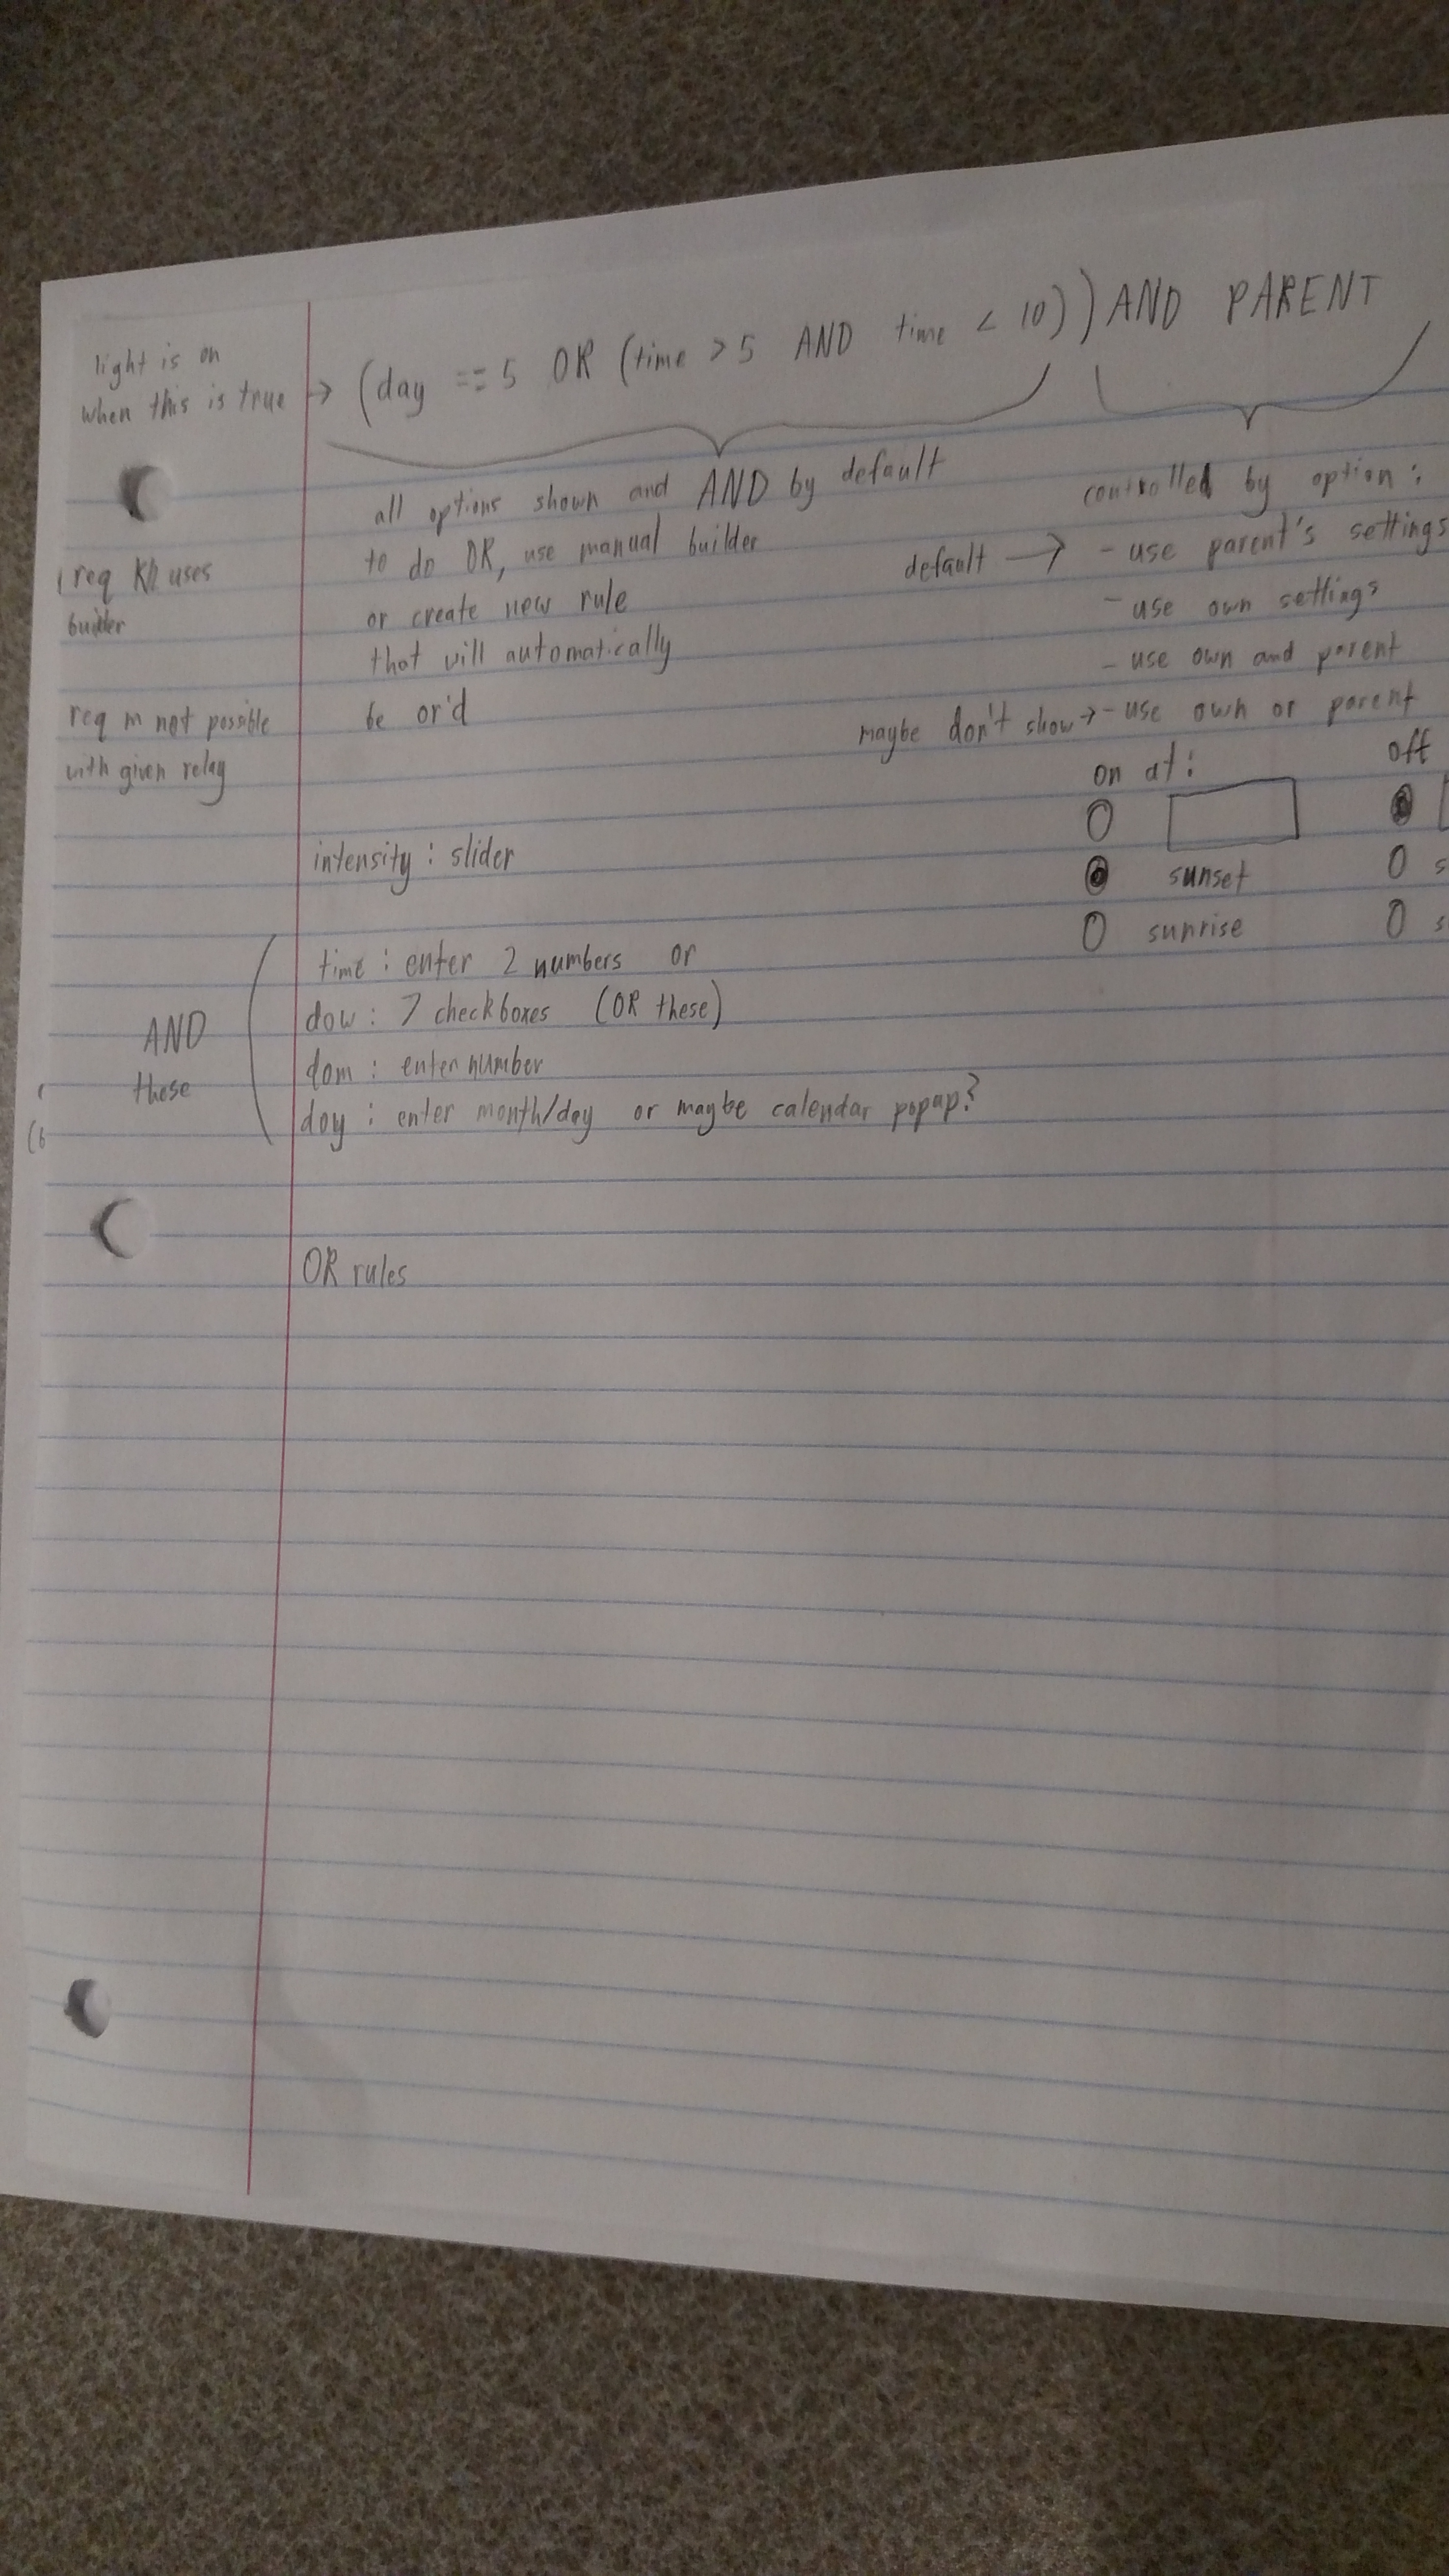 light is on
when this is true → (day == 5 OR (time > 5 AND time < 10)) AND PARENT
all options shown and AND by default
to do OR, use manual builder
or create new rule
that will automatically
be or'd
controlled by option:
default → - use parent's settings
- use own settings
- use own and parent
maybe don't show → - use own or parent
req uses
builder
req m not possible
with given relay
on at:
off
sunset
sunrise
intensity: slider
AND
these
time: enter 2 numbers or
dow: 7 checkboxes (OR these)
dom: enter number
doy: enter month/day or maybe calendar popap?
OR rules